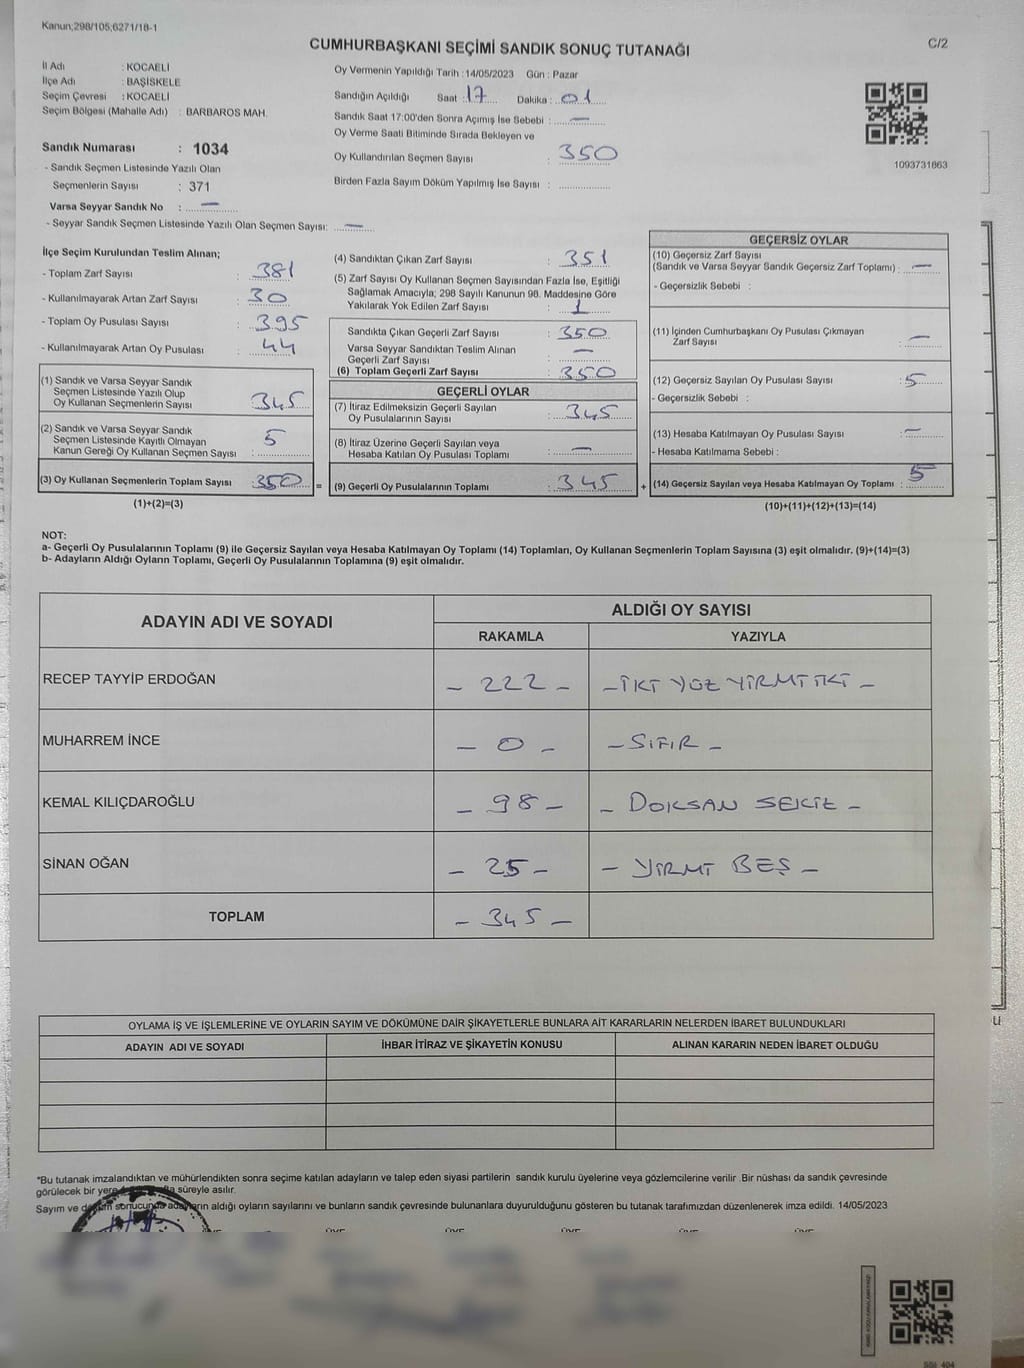 Kanun;298/105,6271/18-1
CUMHURBAŞKANI SEÇİMİ SANDIK SONUÇ TUTANAĞI
C/2
İl Adı : KOCAELİ
İlçe Adı : BAŞİSKELE
Seçim Çevresi : KOCAELİ
Seçim Bölgesi (Mahalle Adı) : BARBAROS MAH.
Sandık Numarası : 1034
- Sandık Seçmen Listesinde Yazılı Olan
Seçmenlerin Sayısı : 371
Varsa Seyyar Sandık No : —
- Seyyar Sandık Seçmen Listesinde Yazılı Olan Seçmen Sayısı: —
Oy Vermenin Yapıldığı Tarih : 14/05/2023 Gün : Pazar
Sandığın Açıldığı Saat : 17 Dakika : 01
Sandık Saat 17:00'den Sonra Açımış İse Sebebi : —
Oy Verme Saati Bitiminde Sırada Bekleyen ve
Oy Kullandırılan Seçmen Sayısı : 350
Birden Fazla Sayım Döküm Yapılmış İse Sayısı :
1093731663
İlçe Seçim Kurulundan Teslim Alınan;
- Toplam Zarf Sayısı : 381
- Kullanılmayarak Artan Zarf Sayısı : 30
- Toplam Oy Pusulası Sayısı : 395
- Kullanılmayarak Artan Oy Pusulası : 44
(1) Sandık ve Varsa Seyyar Sandık
Seçmen Listesinde Yazılı Olup
Oy Kullanan Seçmenlerin Sayısı : 345
(2) Sandık ve Varsa Seyyar Sandık
Seçmen Listesinde Kayıtlı Olmayan
Kanun Gereği Oy Kullanan Seçmen Sayısı : 5
(3) Oy Kullanan Seçmenlerin Toplam Sayısı : 350
(1)+(2)=(3)
(4) Sandıktan Çıkan Zarf Sayısı : 351
(5) Zarf Sayısı Oy Kullanan Seçmen Sayısından Fazla İse, Eşitliği
Sağlamak Amacıyla; 298 Sayılı Kanunun 98. Maddesine Göre
Yakılarak Yok Edilen Zarf Sayısı : 1
Sandıkta Çıkan Geçerli Zarf Sayısı : 350
Varsa Seyyar Sandıktan Teslim Alınan
Geçerli Zarf Sayısı : —
(6) Toplam Geçerli Zarf Sayısı : 350
=
GEÇERLİ OYLAR
(7) İtiraz Edilmeksizin Geçerli Sayılan
Oy Pusulalarının Sayısı : 345
(8) İtiraz Üzerine Geçerli Sayılan veya
Hesaba Katılan Oy Pusulası Toplamı : —
(9) Geçerli Oy Pusulalarının Toplamı : 345
+
GEÇERSİZ OYLAR
(10) Geçersiz Zarf Sayısı
(Sandık ve Varsa Seyyar Sandık Geçersiz Zarf Toplamı) : —
- Geçersizlik Sebebi :
(11) İçinden Cumhurbaşkanı Oy Pusulası Çıkmayan
Zarf Sayısı : —
(12) Geçersiz Sayılan Oy Pusulası Sayısı : 5
- Geçersizlik Sebebi :
(13) Hesaba Katılmayan Oy Pusulası Sayısı : —
- Hesaba Katılmama Sebebi :
(14) Geçersiz Sayılan veya Hesaba Katılmayan Oy Toplamı : 5
(10)+(11)+(12)+(13)=(14)
NOT:
a- Geçerli Oy Pusulalarının Toplamı (9) ile Geçersiz Sayılan veya Hesaba Katılmayan Oy Toplamı (14) Toplamları, Oy Kullanan Seçmenlerin Toplam Sayısına (3) eşit olmalıdır. (9)+(14)=(3)
b- Adayların Aldığı Oyların Toplamı, Geçerli Oy Pusulalarının Toplamına (9) eşit olmalıdır.
ADAYIN ADI VE SOYADI
ALDIĞI OY SAYISI
RAKAMLA YAZIYLA
RECEP TAYYİP ERDOĞAN – 222 – – İKİ YÜZ YİRMİ İKİ –
MUHARREM İNCE – 0 – – SIFIR –
KEMAL KILIÇDAROĞLU – 98 – – DOKSAN SEKİZ –
SİNAN OĞAN – 25 – – YİRMİ BEŞ –
TOPLAM – 345 –
OYLAMA İŞ VE İŞLEMLERİNE VE OYLARIN SAYIM VE DÖKÜMÜNE DAİR ŞİKAYETLERLE BUNLARA AİT KARARLARIN NELERDEN İBARET BULUNDUKLARI
ADAYIN ADI VE SOYADI İHBAR İTİRAZ VE ŞİKAYETİN KONUSU ALINAN KARARIN NEDEN İBARET OLDUĞU
*Bu tutanak imzalandıktan ve mühürlendikten sonra seçime katılan adayların ve talep eden siyasi partilerin sandık kurulu üyelerine veya gözlemcilerine verilir .Bir nüshası da sandık çevresinde
görülecek bir yere süreyle asılır.
Sayım ve döküm sonucunda adayların aldığı oyların sayılarını ve bunların sandık çevresinde bulunanlara duyurulduğunu gösteren bu tutanak tarafımızdan düzenlenerek imza edildi. 14/05/2023